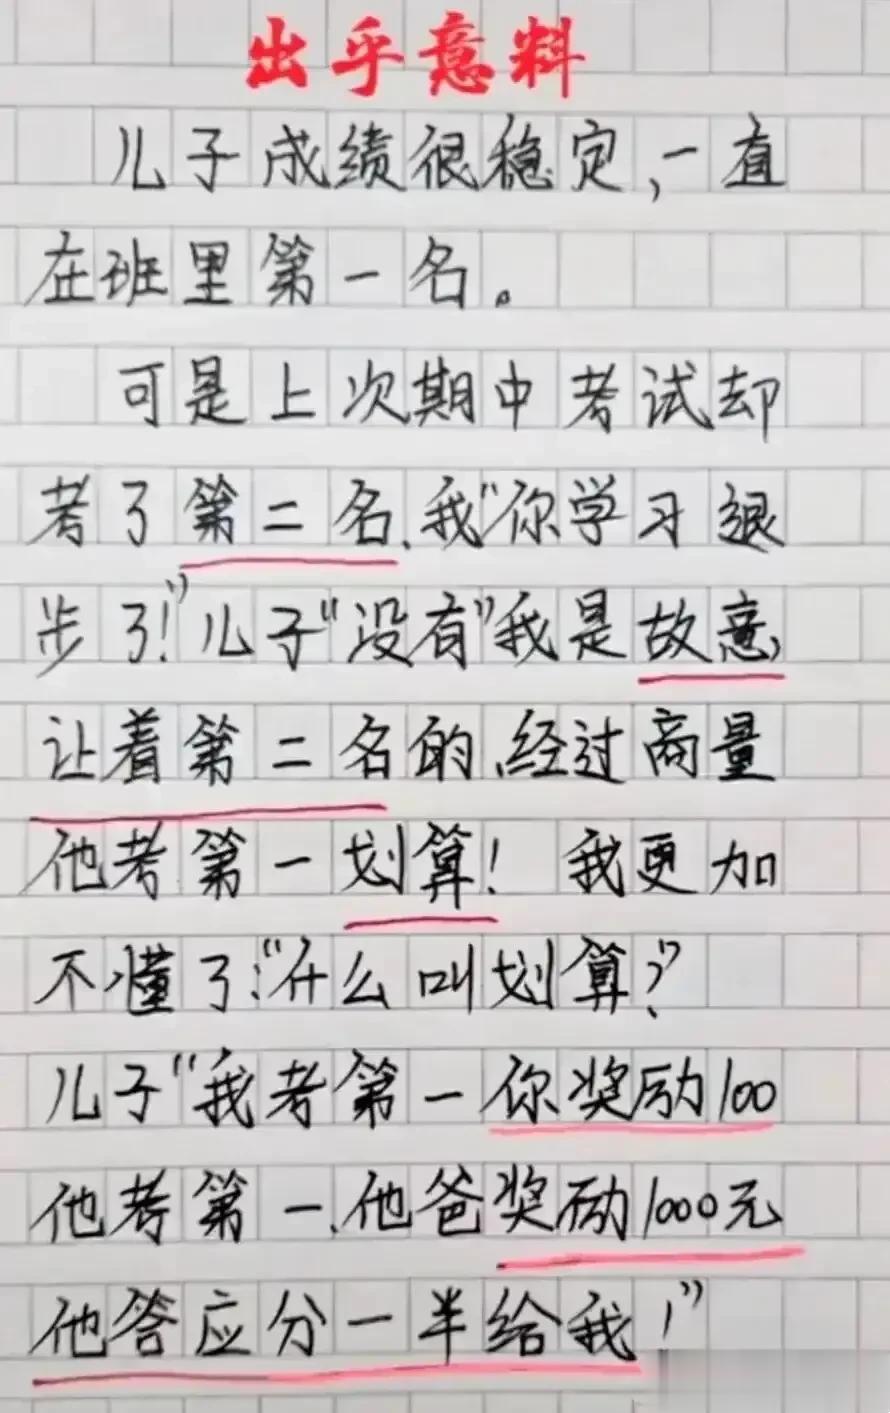 出乎意料
儿子成绩很稳定,一直
在班里第一名。
可是上次期中考试却
考了第二名、我“你学习退
步了!”儿子“没有”我是故意,
让着第二名的、经过商量
他考第一划算! 我更加
不懂了:“什么叫划算?”
儿子“我考第一你奖励100
他考第一、他爸奖励1000元
他答应分一半给我!”